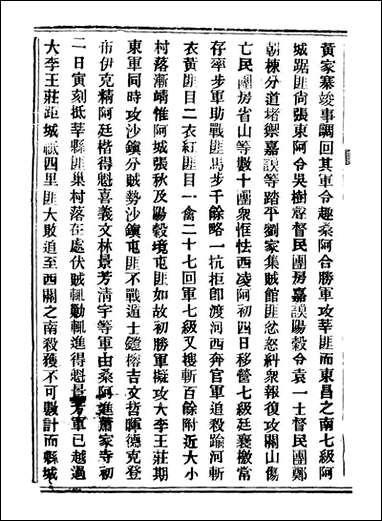 黃家寨竣事闢回其軍令趣桑阿合勝軍攻莘匪而東昌之南七級阿
城踞匪尚張東阿令吳樹聲督民團房嘉誤陽穀令袁一士督民團鄭
朝棟分道堵禦嘉誤等踏平劉家集賊館匪忿怒糾衆報復攻關山傷
亡民團房省山等數十團衆恇怯西凌阿初四日移營七級廷襄檄常
存率步軍助戰匪馬步千餘略一抗拒卽渡河西奔官軍追殺踰河斬
衣黃匪目二衣紅匪目一禽二十七回軍七級又搜斬百餘附近大小
村落漸靖惟阿城張秋及陽穀境屯匪如故初勝軍擬攻大李王莊期
東軍同時攻沙鎮分賊勢沙鎮屯匪不戰遁士鏜榕吉文哲暉德克登
布伊克精阿廷楷得魁喜義文林景芳清宇等軍由桑阿進蕭家寺初
二日寅刻抵莘縣匪巢村落在處伏賊輒勦輒進得魁景芳軍已越過
大李王莊距城祇四里匪大敢追至西關之南殺獲不可數計而縣城